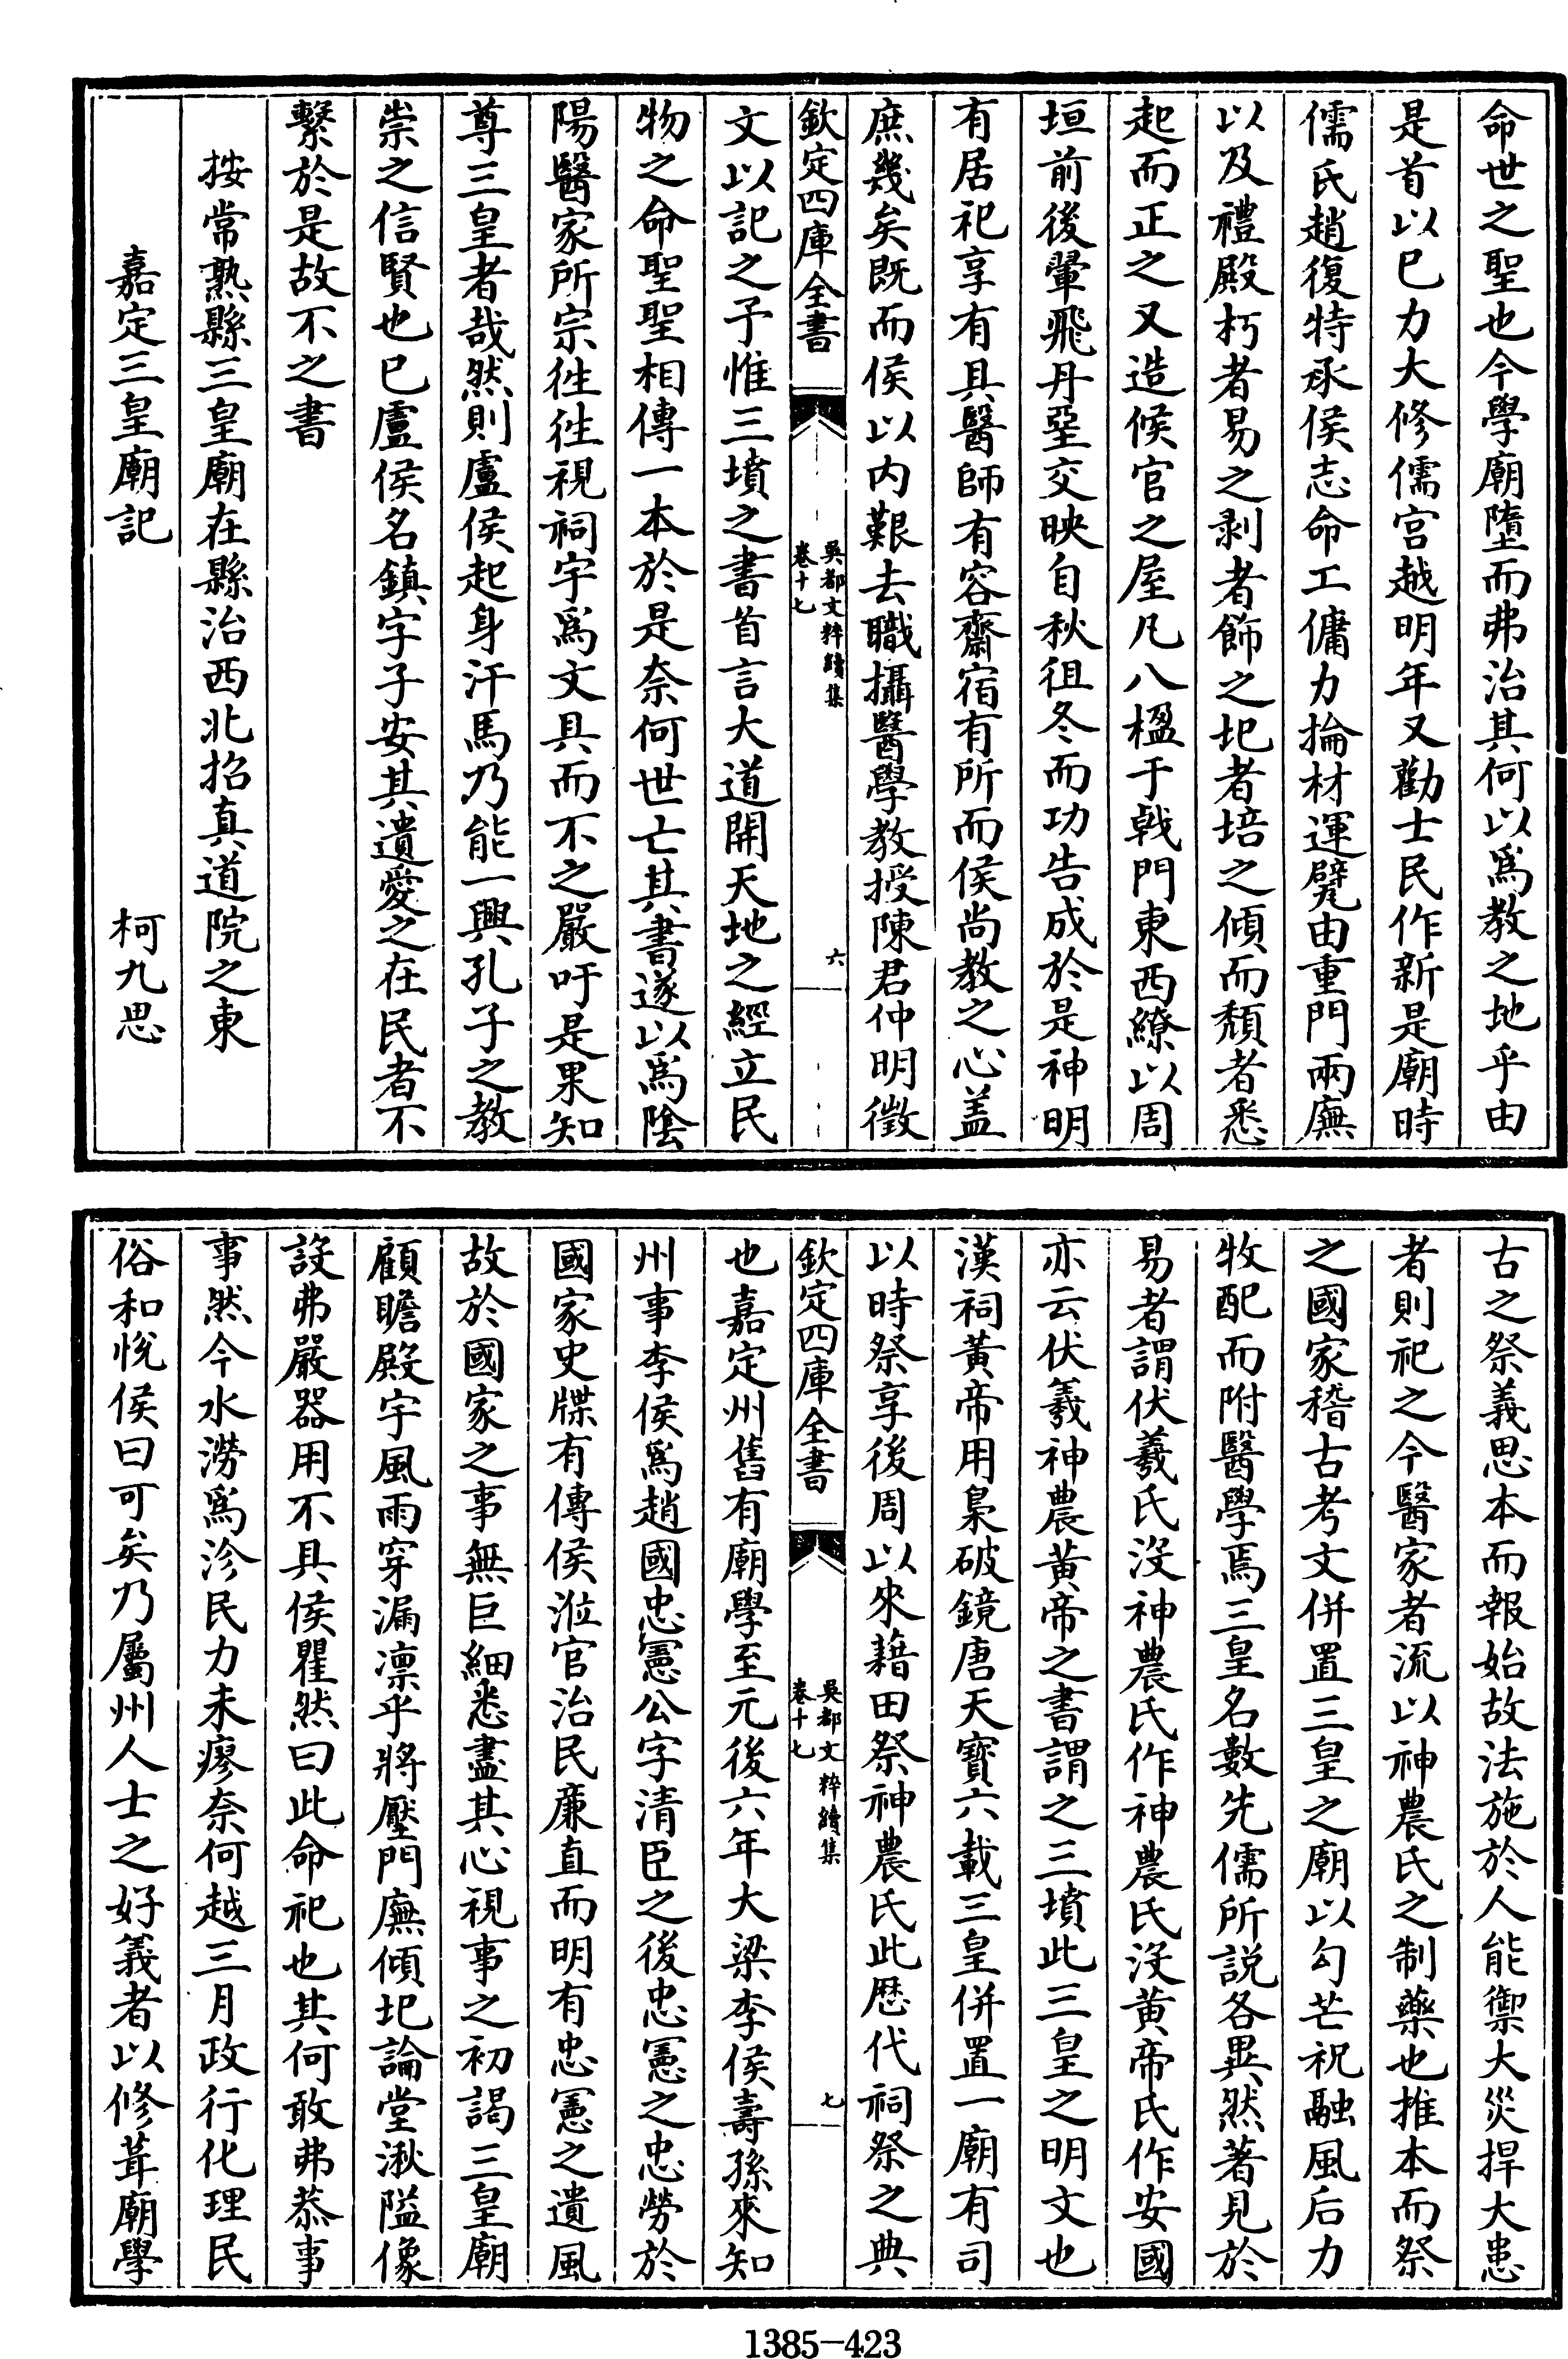 命世之聖也今學廟墮而弗治其何以爲教之地乎由
是首以已力大修儒宮越明年又勸士民作新是廟時
儒氏趙復特承侯志命工傭力掄材運甓由重門兩廡
以及禮殿朽者易之剥者飾之圮者培之傾而頽者悉
起而正之又造候官之屋凡八楹于戟門東西繚以周
垣前後翬飛丹堊交映自秋徂冬而功告成於是神明
有居祀享有具醫師有容齋宿有所而侯尚教之心盖
庶幾矣既而侯以内艱去職攝醫學教授陳君仲明徴
欽定四庫全書
吳都文粹續集
卷十七
六
文以記之予惟三墳之書首言大道開天地之經立民
物之命聖聖相傳一本於是奈何世亡其書遂以爲陰
陽醫家所宗徃徃視祠宇爲文具而不之嚴吁是果知
尊三皇者哉然則盧侯起身汗馬乃能一興孔子之教
崇之信賢也已盧侯名鎮字子安其遺愛之在民者不
繫於是故不之書
按常熟縣三皇廟在縣治西北招真道院之東
嘉定三皇廟記
柯九思
古之祭義思本而報始故法施於人能禦大災捍大患
者則祀之今醫家者流以神農氏之制藥也推本而祭
之國家稽古考文併置三皇之廟以勾芒祝融風后力
牧配而附醫學焉三皇名數先儒所説各異然著見於
易者謂伏羲氏沒神農氏作神農氏沒黄帝氏作安國
亦云伏羲神農黄帝之書謂之三墳此三皇之明文也
漢祠黄帝用梟破鏡唐天寳六載三皇併置一廟有司
以時祭享後周以來藉田祭神農氏此歴代祠祭之典
欽定四庫全書
吳都文粹續集
卷十七
七
也嘉定州舊有廟學至元後六年大梁李侯壽孫來知
州事李侯爲趙國忠憲公字清臣之後忠憲之忠勞於
國家史牒有傳侯涖官治民亷直而明有忠憲之遺風
故於國家之事無巨細悉盡其心視事之初謁三皇廟
顧瞻殿宇風雨穿漏凛乎將壓門廡傾圮論堂湫隘像
設弗嚴器用不具侯瞿然曰此命祀也其何敢弗恭事
事然今水澇爲沴民力未瘳奈何越三月政行化理民
俗和悅侯曰可矣乃屬州人士之好義者以修葺廟學
1385-423